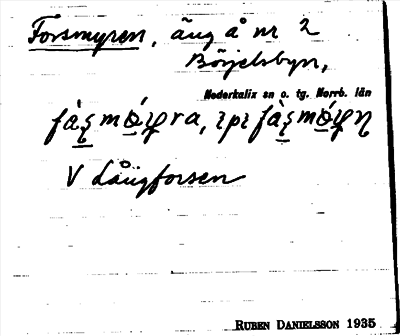 Forsmyren, äng å nr 2
Börjelsbyn,
Nederkalix sn o. tg. Norrb. län
V Långforsen
RUBEN DANIELSSON 1935